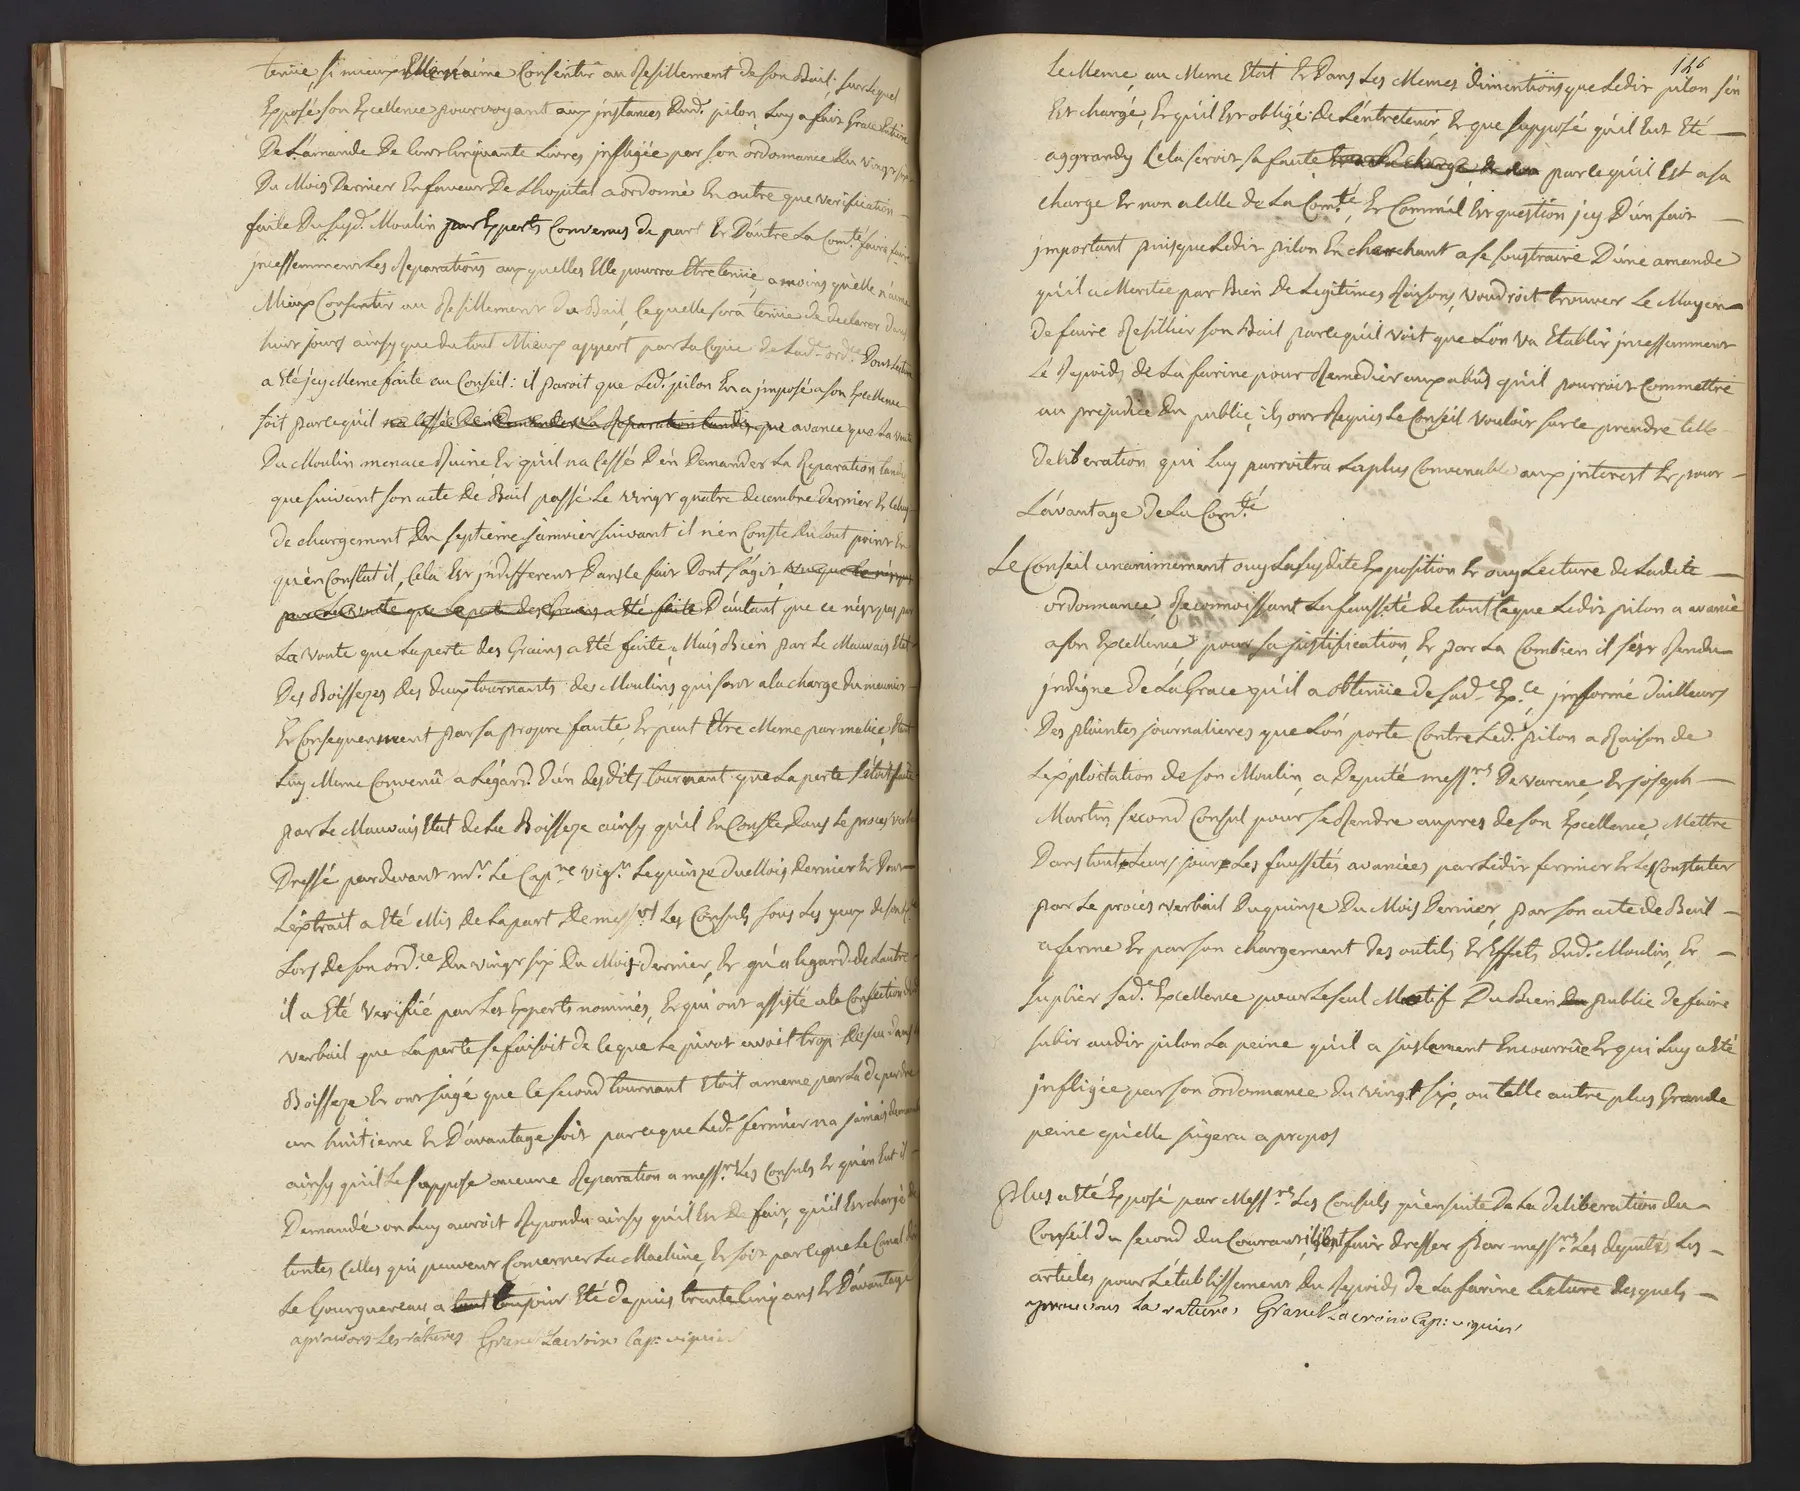 tenüe, si mieux Elle n'aime Consentir au Resillement de son Bail; sur lequel
Exposé son Excellence pourvoyant aux jnstances Dud. pilon, Luy a fait Grace Entiere
De L'amande De Cent Cinquante Livres jnfligée par son ordonnance Du vingt six
Du Mois Dernier En faveur De L'hopital a ordonné En outre que verification
faite Du susd. Moulin par Experts Convenus de part Et D'autre La Com.té faira faire
jncessemment Les Reparations aux quelles Elle pourra Etre tenüe, a moins qu'elle n'aime
Mieux Consentir au Resillement du Bail, Ce quelle sera tenüe de declarer Dans
huit jours ainsy que du tout Mieux appert par La Copie de Lad. ord.ce Dont Lecture
a Eté jcy Meme faite au Conseil: il paroit que Led. pilon En a jmposé a son Excellence
soit parce qu'il na cessé Den Demander La Reparation tandis que avance que La voute
Du Moulin menace Ruine, Et qu'il na Cessé D'en Demander La Reparation, tandis
que suivant son acte De Bail passé Le vingt quatre decembre dernier Et Celuy
de chargement Du septieme janvier suivant il n'en Conste du tout point Et
qu'en Constat il, Cela Est jndifferent Dans Le fait Dont s'agit, vu que Ce n'est pas
par La voute que La perte des Grains a Eté faite D'autant que ce n'est pas par
La voute que La perte des Grains a Eté faite, Mais Bien par Le Mauvais Etat
Des Boissezes des deux tournants des Moulins, qui sont a la charge du meunier
Et Consequemment par sa propre faute, Et peut Etre Meme par malice, Etant
Luy Meme Convenû a L'égard D'un desdits tournant que La perte s'étoit faite
par Le Mauvais Etat de La Boisseze ainsy qu'il En Conste Dans Le proces verbal
Dressé pardevant m.r Le Cap.ne vig.r Le quinze Du Mois Dernier Et Dont
L'extrait a Eté Mis de La part De mess.rs Les Consuls sous Les yeux de son Ex.ce
Lors de son ord.ce Du vingt six Du Mois dernier, Et qu'a l'egard de L'autre
il a Eté verifié par Les Experts nommés, Et qui ont assisté a la Confection dud.
verbail que La perte se faisoit de ce que Le pivot avoit trop De jeu dans la
Boisseze Et ont jugé que ce second tournant Etoit a meme par La de perdre
un huitieme Et D'avantage soit parce que Led. fermier n'a jamais demandé
ainsy qu'il Le suppose aucune Reparation a mess.rs Les Consuls Et qu'en Eut il
Demandé on Luy auroit Repondu ainsy qu'il Est De fait, qu'il Est chargé de
toutes Celles qui peuvent Concerner La Machine, Et soit parce que Le Canal dit
Le Gourguereau a toujour Eté depuis trente Cinq ans Et D'avantage
aprouvons Les ratures Grand Lacroix Cap: viguier
146
Le Meme, au Meme Etat Et Dans Les Memes dimentions que Ledit pilon s'en
Est chargé, Et qu'il Est obligé de L'entretenir, Et que supposé qu'il Eut Eté
aggrandy Cela seroit sa faute Et a sa charge, Et non parce qu'il Est a sa
charge Et non a Celle de La Com.té, Et Comm'il Est question jcy D'un fait
jmportant puisque Ledit pilon En cherchant a se soustraire D'une amande
qu'il a Meritée par Bien De Legitimes Raisons, voudroit trouver Le Moyen
De faire Resillier son Bail parce qu'il voit que L'on va Etablir jncessemment
Le Repoids de La farine pour Remedier aux abus qu'il pourroit Commettre
au prejudice Du public, ils ont Requis Le Conseil vouloir sur ce prendre telle
deliberation qui Luy parroitra La plus Convenable aux jnterest Et pour
L'avantage De La Com.té
Le Conseil unanimement ouy La susdite Exposition Et ouy Lecture de Ladite
ordonnance, Reconnoissant La fausseté de tout ce que Ledit pilon a avancé
a son Excellence, pour sa justification, Et par La Combien il s'est Rendu
jndigne de La Grace qu'il a obtenüe de sad.e Ex.ce, jnformé d'ailleurs
Des plaintes journalieres que L'on porte Contre Led. pilon a Raison de
L'exploitation de son Moulin, a Deputé mess.rs De varene, Et joseph
Martin, second Consul pour se Rendre aupres de son Excellence, Mettre
Dans tout Leurs jour Les faussetés avancées par Ledit fermier Et Les Constater
par Le proces verbail Du quinze Du Mois Dernier, par son acte de Bail
a ferme Et par son chargement Des outils Et Effets Dud. Moulin, Et
suplier sad.e Excellence pour Le seul Motif Du Bien public de faire
subir audit pilon La peine qu'il a justement Encourrüe Et qui Luy a Eté
jnfligée par son ordonnance du vingt six, ou telle autre plus Grande
peine qu'elle jugera a propos
Plus a Eté Exposé par Mess.rs Les Consuls qu'ensuite De La deliberation du
Conseil du second du Courant ils ont fait dresser par mess.rs Les deputés Les
articles pour L'etablissement Du Repoids de La farine Lecture desquels
aprouvons La rature, Grand Lacroix Cap: viguier